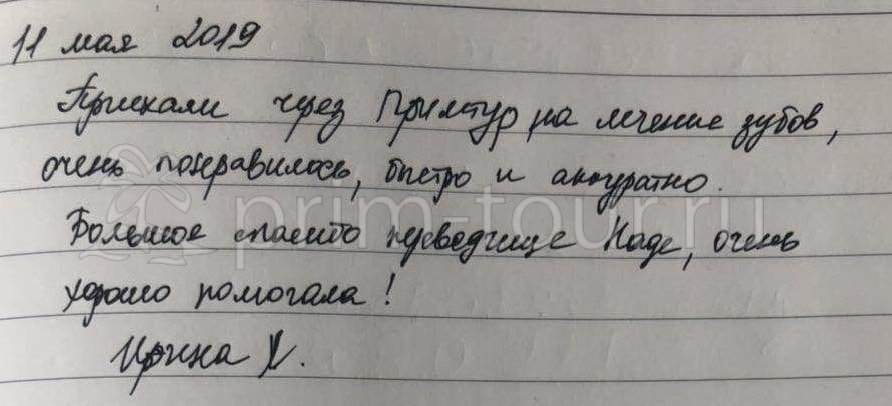 11 мая 2019
Приехали через Примтур на лечение зубов,
очень понравилось, быстро и аккуратно.
prim-tour.ru
Большое спасибо переводчице Наде, очень
хорошо помогала!
Ирина Х.